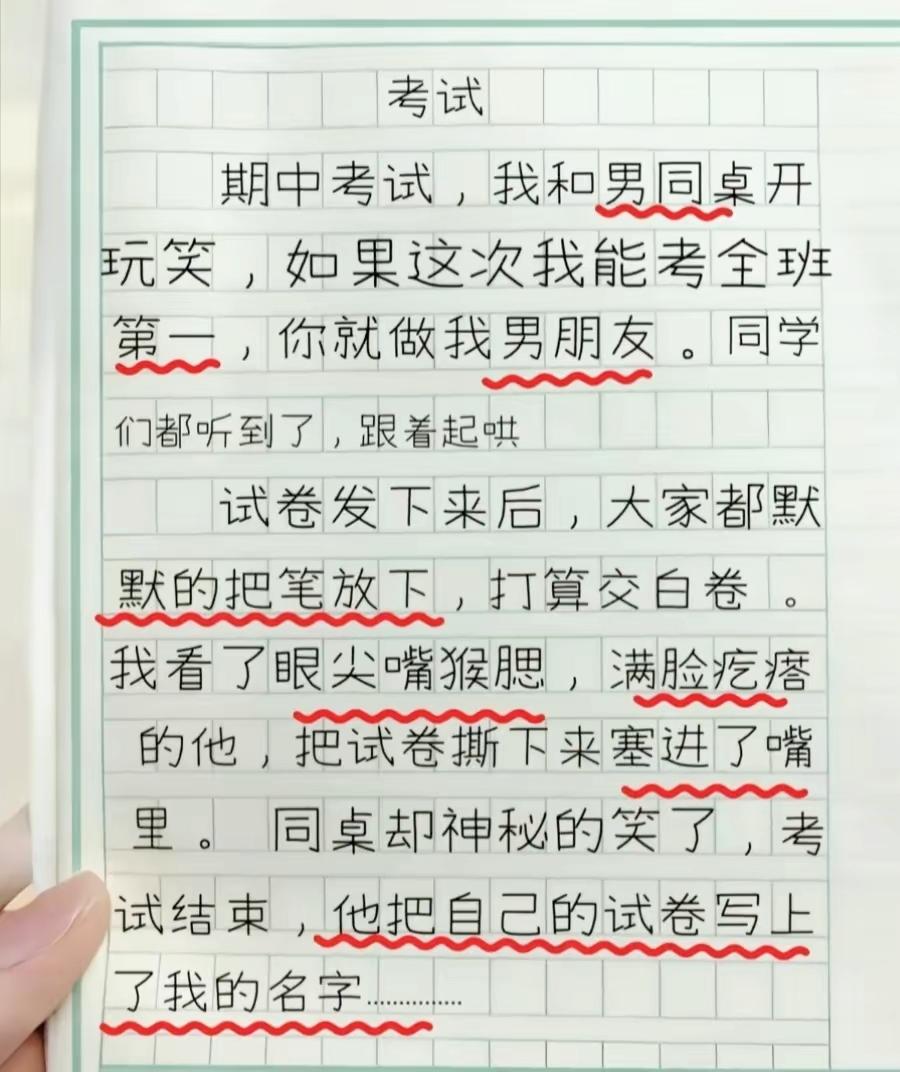 考试
期中考试，我和男同桌开
玩笑，如果这次我能考全班
第一，你就做我男朋友。同学
们都听到了，跟着起哄
试卷发下来后，大家都默
默的把笔放下，打算交白卷。
我看了眼尖嘴猴腮，满脸疙瘩
的他，把试卷撕下来塞进了嘴
里。 同桌却神秘的笑了，考
试结束，他把自己的试卷写上
了我的名字...............